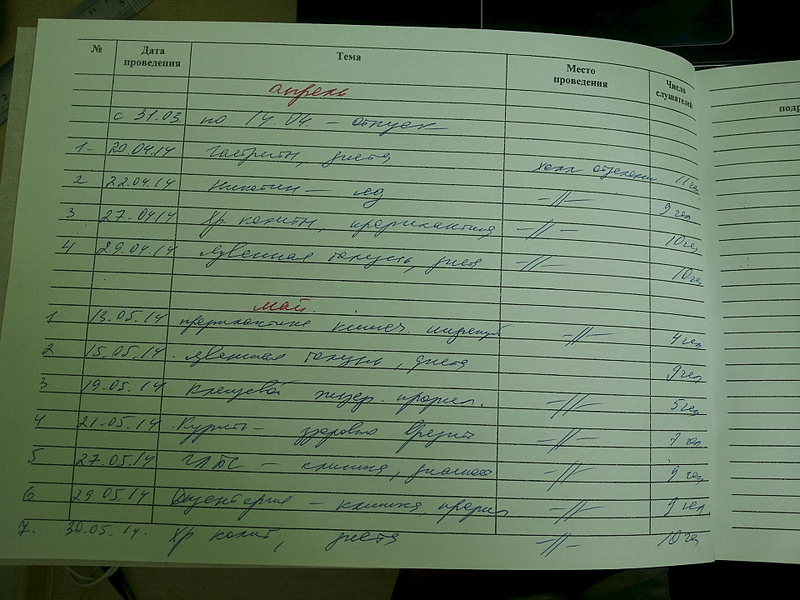 № Дата проведения Тема Место проведения Число слушателей
апрель
с 31.03. по 14 04 – отпуск
1- 20.04.14 Гастриты, диета отделения 11 чел
2 22.04.14 Никотин – яд –//– 9 чел
3 27.04.14 Хр колиты, профилактика –//– 10 чел
4 29.04.14 Язвенная болезнь, диета –//– 10 чел
май.
1 13.05.14 профилактика кишеч. инфекций –//– 4 чел
2 15.05.14. Язвенная болезнь, диета 9 чел
3 19.05.14 Клещевой энцеф. профил. –//– 5 чел
4 21.05.14 Курить – здоровью вредить –//– 7 чел
5 27.05.14 ГЛПС – клиника, –//– 9 чел
6 29.05.14 Дизентерия – клиника, профил –//– 9 чел
7. 30.05.14. Хр колит, диета –//– 10 чел
подр